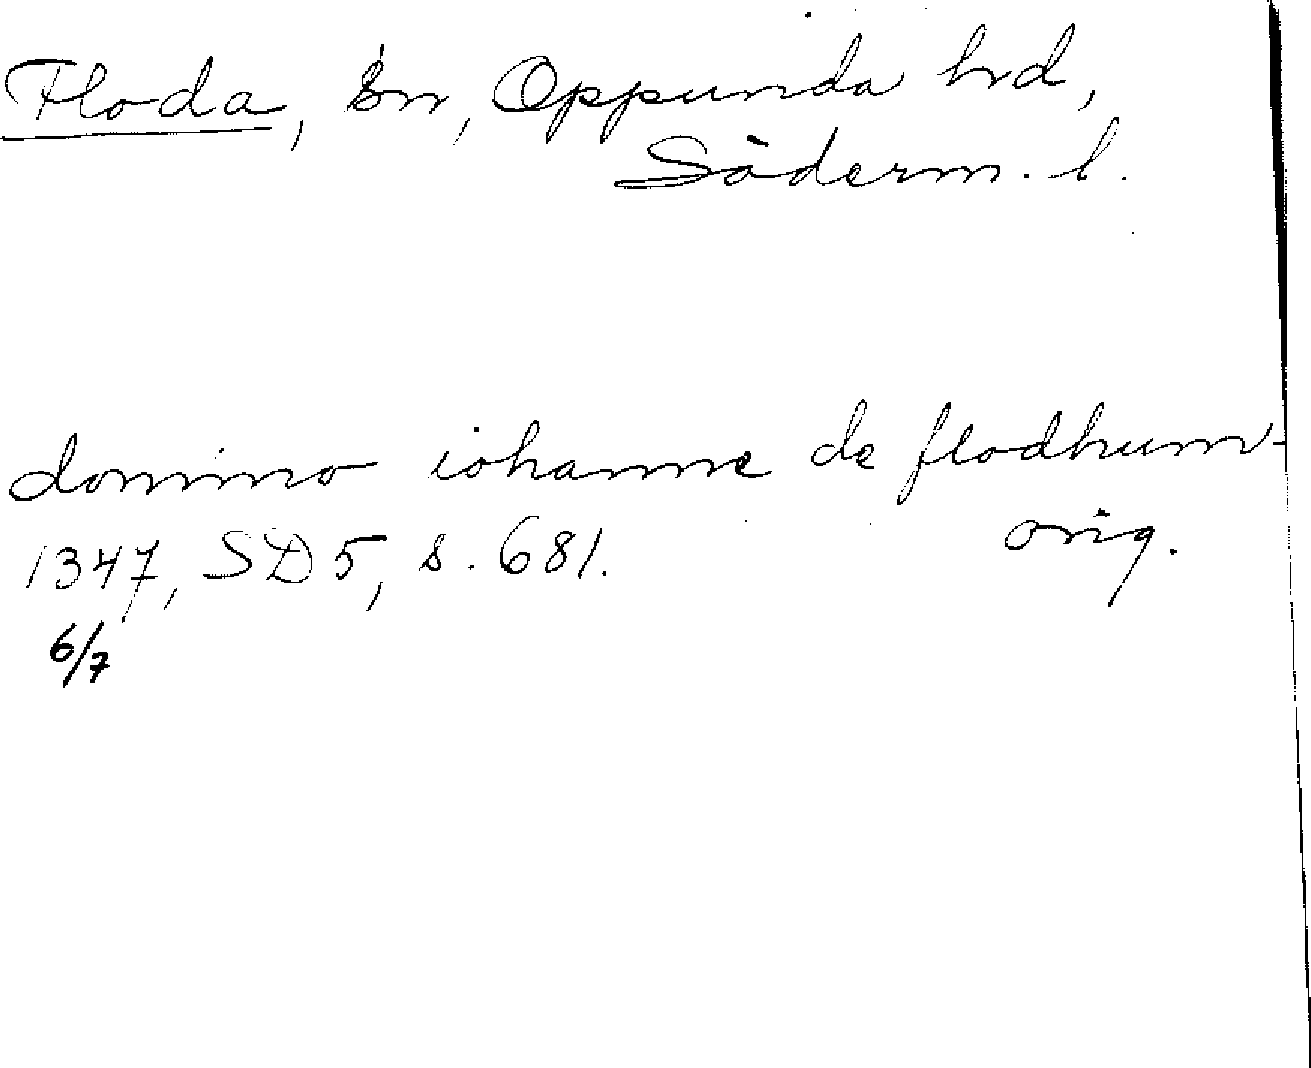 Floda, sn, Oppunda hrd,
Söderm. l.
domino iohanne de flodhum
1347, SD 5, s. 681. orig.
6/7